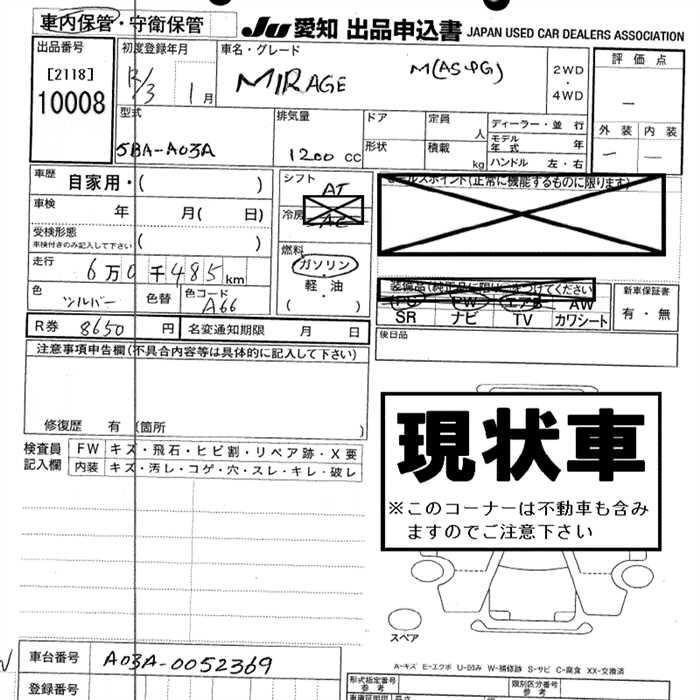 車内保管・守衛保管
JU 愛知 出品申込書 JAPAN USED CAR DEALERS ASSOCIATION
出品番号
[2118]
10008
初度登録年月
1 月
車名・グレード
MIRAGE M(AS.PG)
2WD
・
4WD
評 価 点
外 装 内 装
型式
5BA-A03A
排気量
1200 CC
ドア
定員
人
形状
積載
kg
ディーラー・並 行
モデル年式 年
ハンドル 左・右
車歴 自家用・( )
車検 年 月( 日)
受検形態
車検付きのみ記入して下さい ( )
走行 6万0千485km
色 シルバー 色替 色コード A66
シフト AT
冷房
燃料
ガソリン
・
軽・油
( )
セールスポイント(正常に機能するものに限ります)
装備品(純正品に限り つけてください
PS PW エアB AW
SR ナビ TV カワシート
新車保証書
有・無
R券 8650 円 名変通知期限 月 日
後日品
注意事項申告欄(不具合内容等は具体的に記入して下さい)
修復歴 有 (箇所 )
現状車
※このコーナーは不動車も含み
ますのでご注意下さい
検査員
記入欄
FW キズ・飛石・ヒビ割・リペア跡・X要
内装 キズ・汚レ・コゲ・穴・スレ・キレ・破レ
スペア
A-キズ E-エクボ U-凹み W-補修跡 S-サビ C-腐食 XX-交換済
車台番号 A03A-0052369
登録番号
形式指定番号
参 考
類別区分番号
参 考